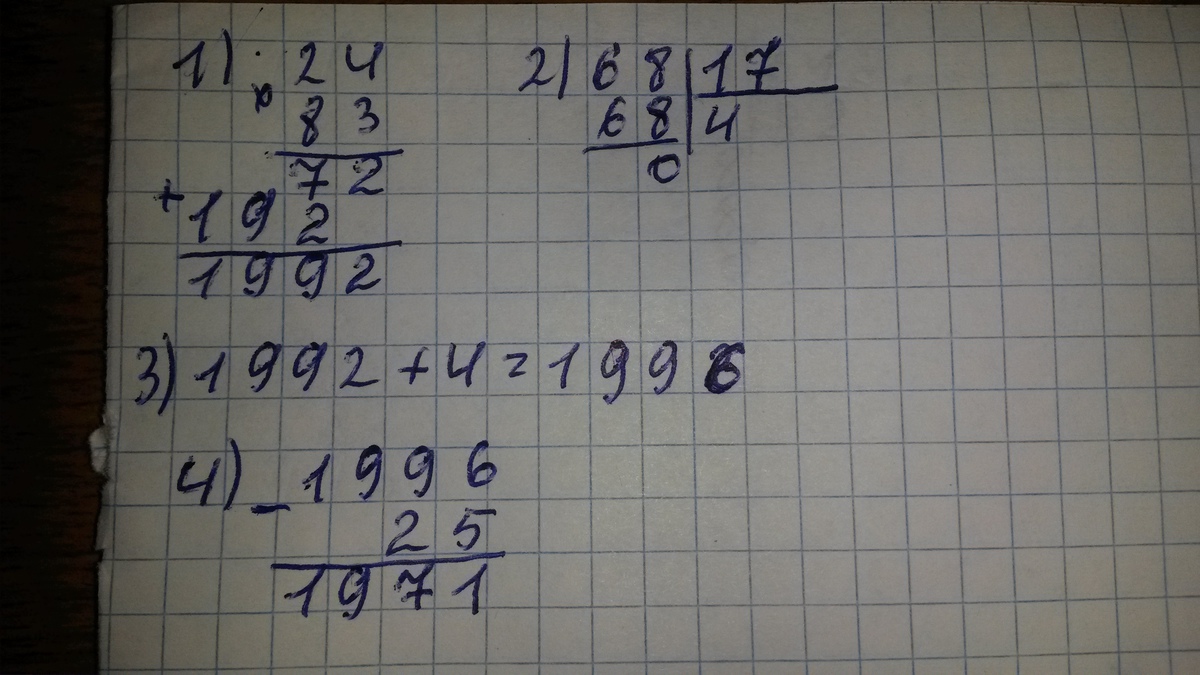 1) x 24
83
72
+ 192
1992
2) 68 | 17
68 | 4
0
3) 1992 + 4 = 1996
4) - 1996
25
1971